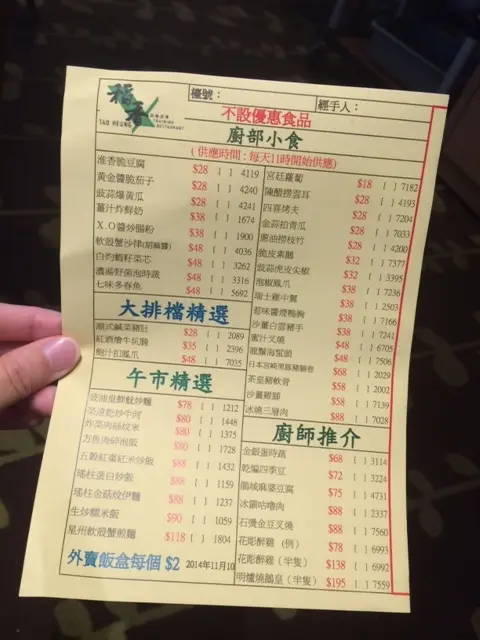 稻香
TAO HEUNG
檯號：
經手人：
不設優惠食品
廚部小食
(供應時間：每天11時開始供應)
淮香脆豆腐 $28 [ ] 4119
黃金醬脆茄子 $28 [ ] 4240
豉蒜爆黃瓜 $28 [ ] 4241
薑汁炸鮮奶 $38 [ ] 1674
X.O醬炒腸粉 $38 [ ] 1900
軟殼蟹沙律(胡麻醬) $48 [ ] 4036
白灼蝦籽菜芯 $48 [ ] 3262
濃湯野菌泡時蔬 $48 [ ] 3316
七味多春魚 $48 [ ] 5692
大排檔精選
潮式鹹菜豬肚 $28 [ ] 2089
紅酒燴牛坑腩 $35 [ ] 2396
鮑汁扣鳳爪 $48 [ ] 7035
午市精選
豉油皇鮮魷炒麵 $78 [ ] 1212
菜遠乾炒牛河 $80 [ ] 1448
炸菜肉絲炆米 $80 [ ] 1375
方魚肉碎泡飯 $80 [ ] 1728
五穀紅棗紅米炒飯 $88 [ ] 1432
瑤柱蛋白炒飯 $88 [ ] 1159
瑤柱金菇炆伊麵 $88 [ ] 1237
生炒糯米飯 $90 [ ] 1059
星州軟殼蟹煎麵 $118 [ ] 1804
外賣飯盒每個 $2 2014年11月10
宮廷蘿蔔 $18 [ ] 7182
陳醋撈雲耳 $28 [ ] 4193
四喜烤夫 $28 [ ] 7204
金蒜拍青瓜 $28 [ ] 7033
蔥油撈枝竹 $28 [ ] 4200
脆皮素鵝 $32 [ ] 7377
豉蒜虎皮尖椒 $32 [ ] 3395
泡椒鳳爪 $38 [ ] 7236
瑞士雞中翼 $38 [ ] 2503
惹味醬燒鴨胸 $38 [ ] 7166
沙薑白雲豬手 $38 [ ] 7241
蜜汁叉燒 $48 [ ] 6705
龍鬚海蜇頭 $48 [ ] 7506
日本宮崎黑豚豬腸卷 $68 [ ] 2029
茶皇豬軟骨 $58 [ ] 2002
沙薑雞腳 $58 [ ] 7139
冰燒三層肉 $88 [ ] 7028
廚師推介
金銀蛋時蔬 $68 [ ] 3114
乾煸四季豆 $72 [ ] 3224
鵝城麻婆豆腐 $75 [ ] 4731
冰鎮咕嚕肉 $88 [ ] 2337
石燙金豆叉燒 $88 [ ] 7560
花彫醉雞 (例) $78 [ ] 6993
花彫醉雞 (半隻) $138 [ ] 6992
明爐燒鵝皇 (半隻) $195 [ ] 7559